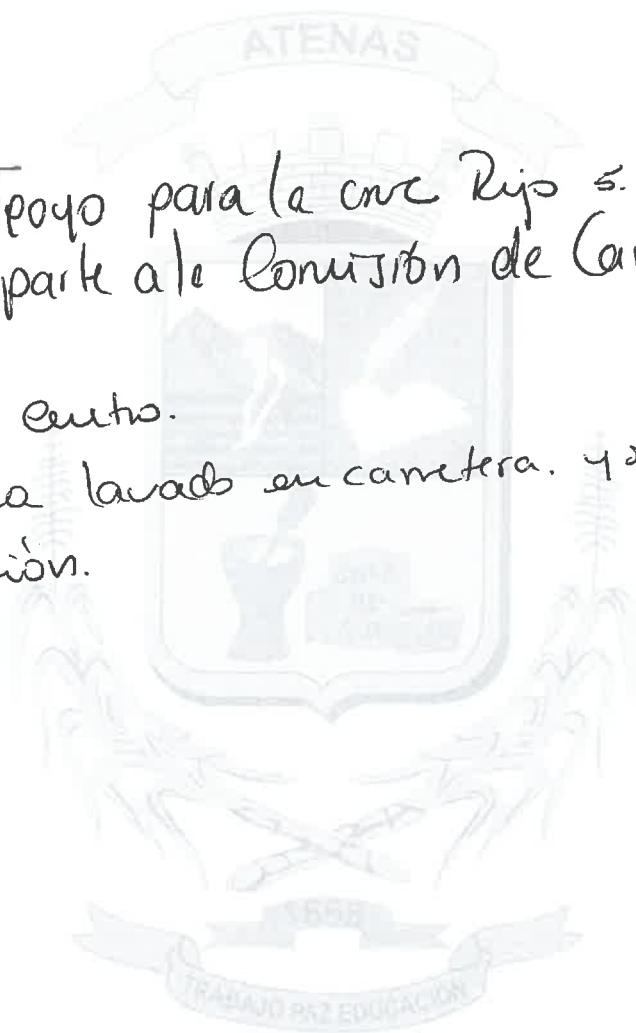 ATENAS
poyo para la cruz Rijo s.
parte a la Comisión de Car
centro.
a lavado en carretera. y a
ión.
1868
TRABAJO PAZ EDUCACIÓN